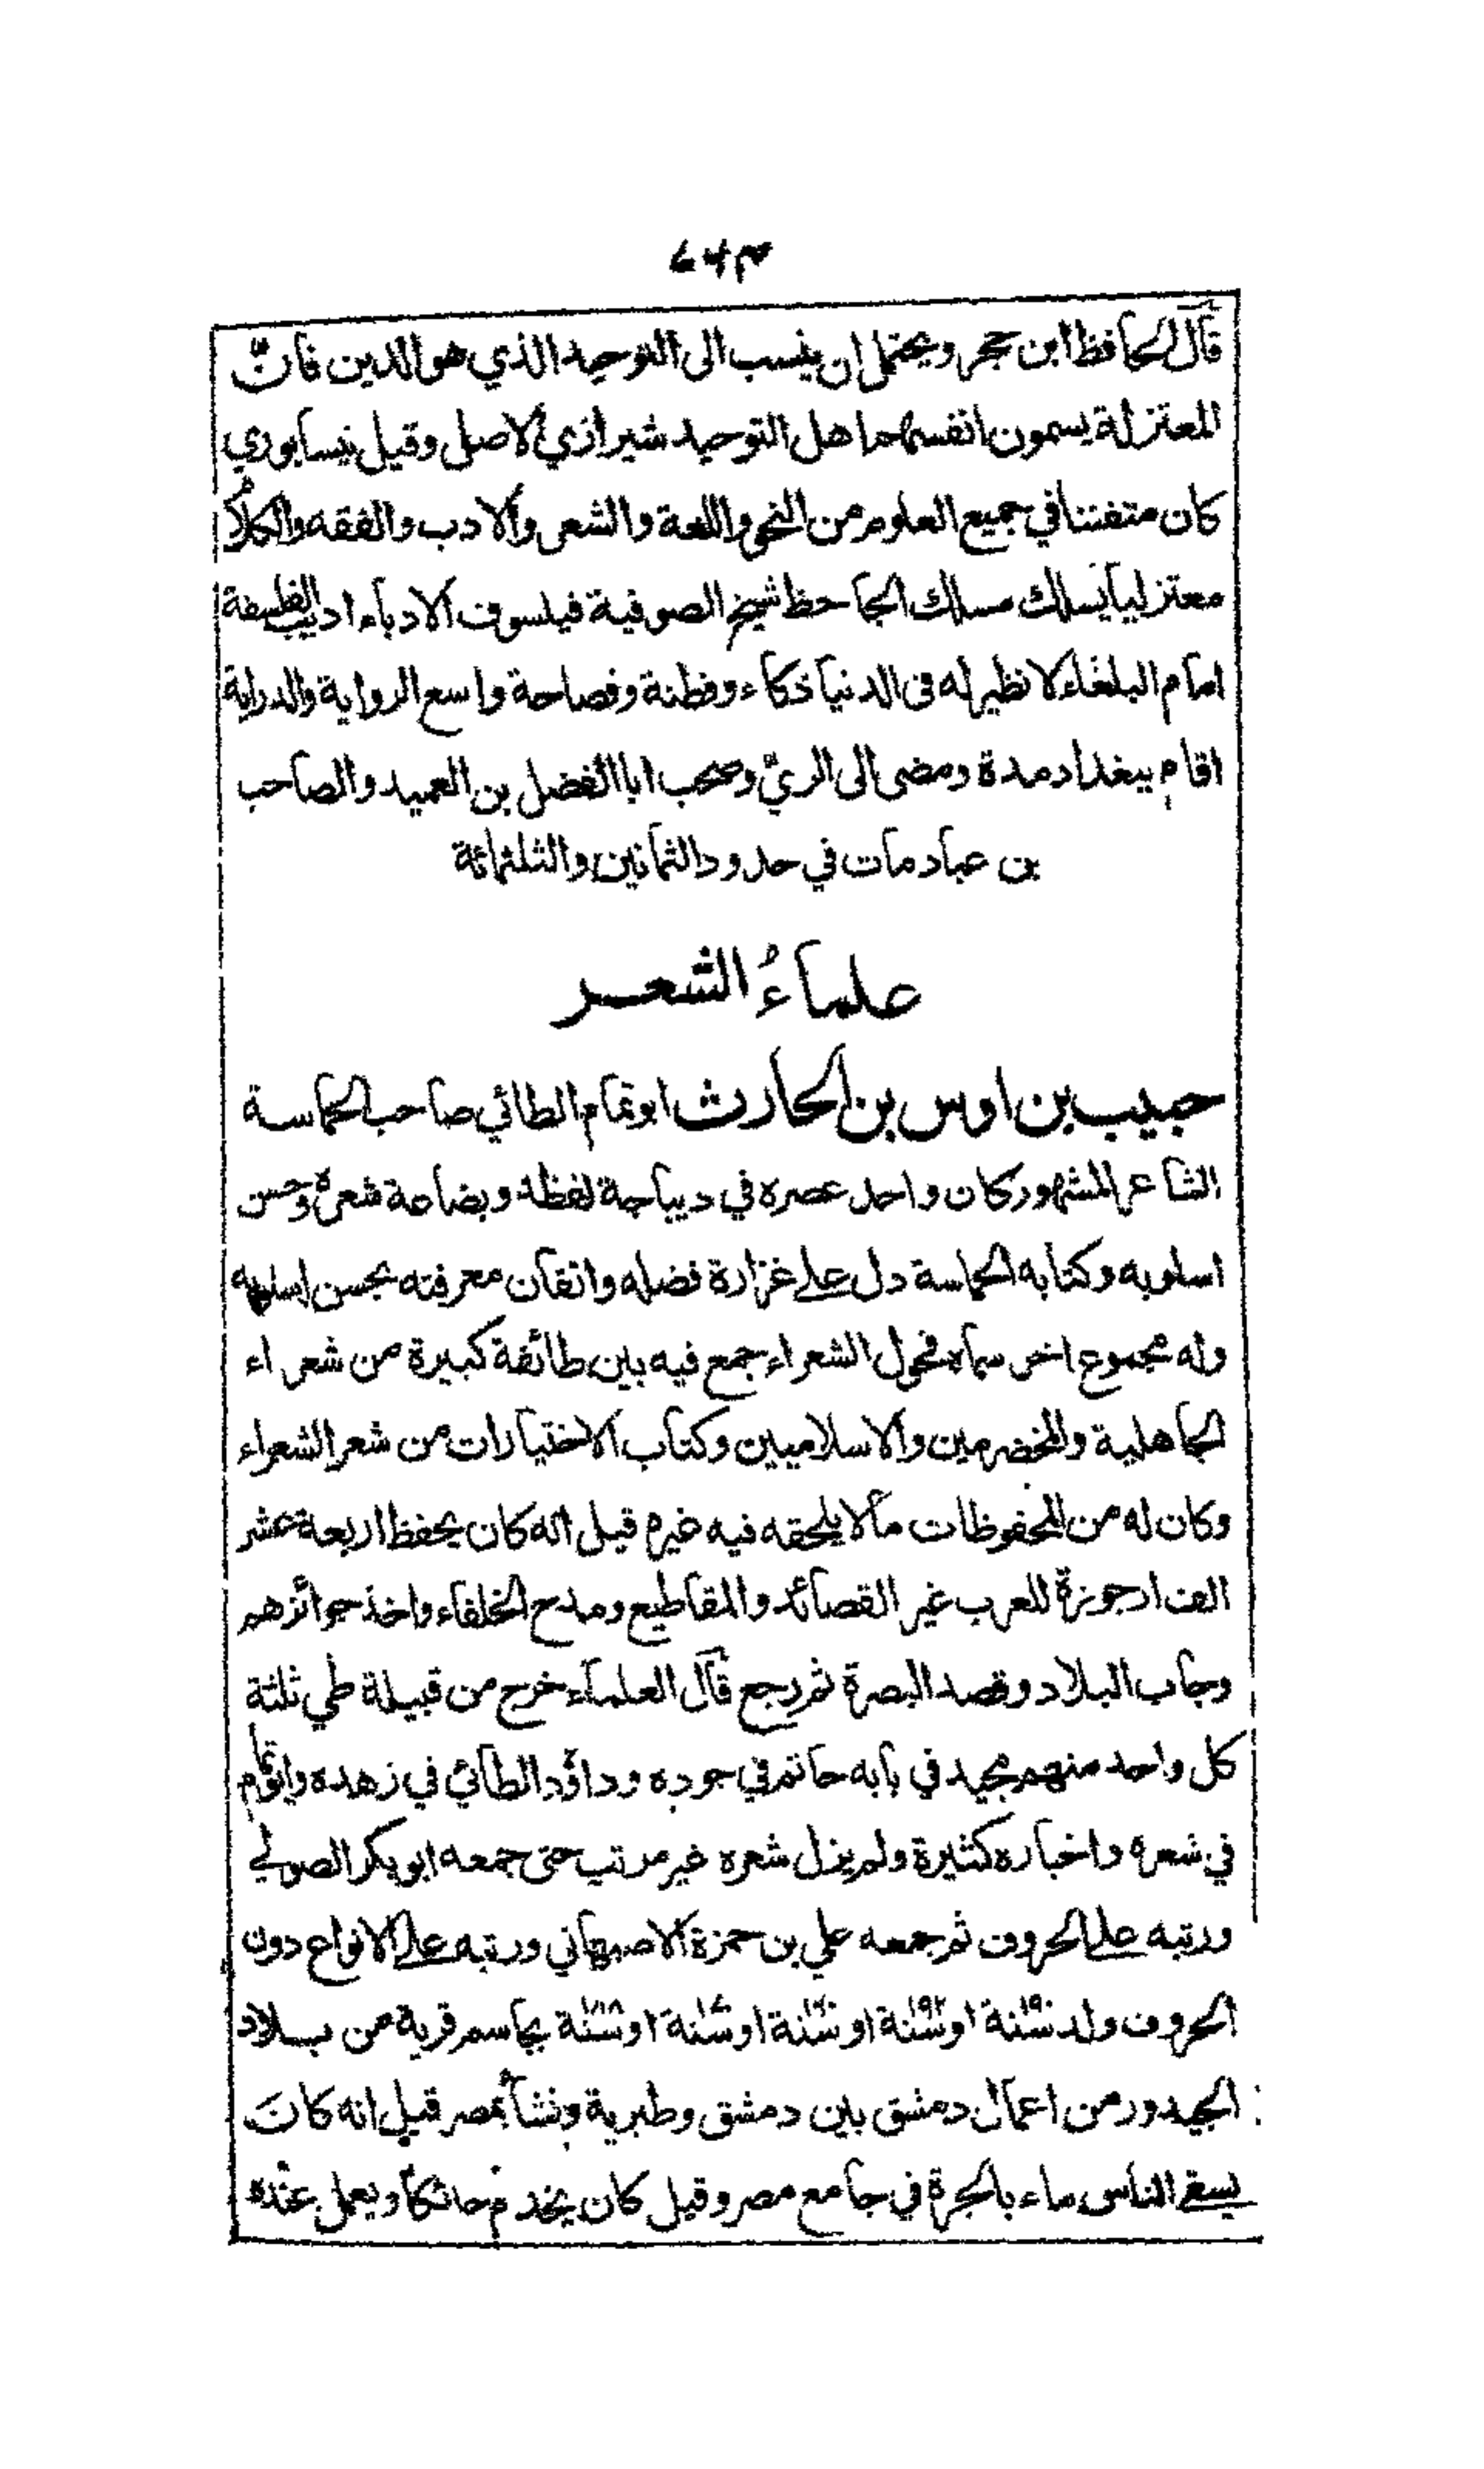 قال الحافظ ابن حجر ويحتمل ان ينسب الى التوحيد الذي هو الدين فان
المعتزلة يسمون انفسهم اهل التوحيد شيرازي الاصل وقيل نيسابوري
كان متفننا في جميع العلوم من النحو واللغة والشعر والادب والفقه والكلام
معتزليا يسلك مسلك الجاحظ شيخ الصوفية فيلسوف الادباء اديب الفلسفة
امام البلغاء لا نظير له فى الدنيا ذكاء وفطنة وفصاحة واسع الرواية والدراية
اقام ببغداد مدة ومضى الى الريّ وصحب ابا الفضل بن العميد والصاحب
بن عباد مات في حدود الثمانين والثلثمائة
علماءُ الشعر
حبيب بن اوس بن الحارث ابو تمام الطائي صاحب الحماسة
الشاعر المشهور كان واحد عصره في ديباجة لفظه وبضاعة شعره وحسن
اسلوبه وكتابه الحماسة دل على غزارة فضله واتقان معرفته بحسن اسلوبه
وله مجموع اخر سماه فحول الشعراء جمع فيه بين طائفة كبيرة من شعراء
الجاهلية والمخضرمين والاسلاميين وكتاب الاختيارات من شعر الشعراء
وكان له من المحفوظات مالا يلحقه فيه غيره قيل انه كان يحفظ اربعة عشر
الف ارجوزة للعرب غير القصائد والمقاطيع ومدح الخلفاء واخذ جوائزهم
وجاب البلاد وقصد البصرة ثم رجع قال العلماء خرج من قبيلة طي ثلثة
كل واحد منهم مجيد في بابه حاتم في جوده وداؤد الطائي في زهده وابو تمام
في شعره واخباره كثيرة ولم يزل شعره غير مرتب حتى جمعه ابو بكر الصولي
ورتبه على الحروف ثم جمعه علي بن حمزة الاصبهاني ورتبه على الانواع دون
الحروف ولد سنة ١٩٠ او سنة ١٩٢ او سنة او سنة او سنة بجاسم قرية من بلاد
الجيدور من اعمال دمشق بين دمشق وطبرية ونشأ بمصر قيل انه كانَ
يسقي الناس ماء بالجرة في جامع مصر وقيل كان يخدم حائكا ويعمل عنده